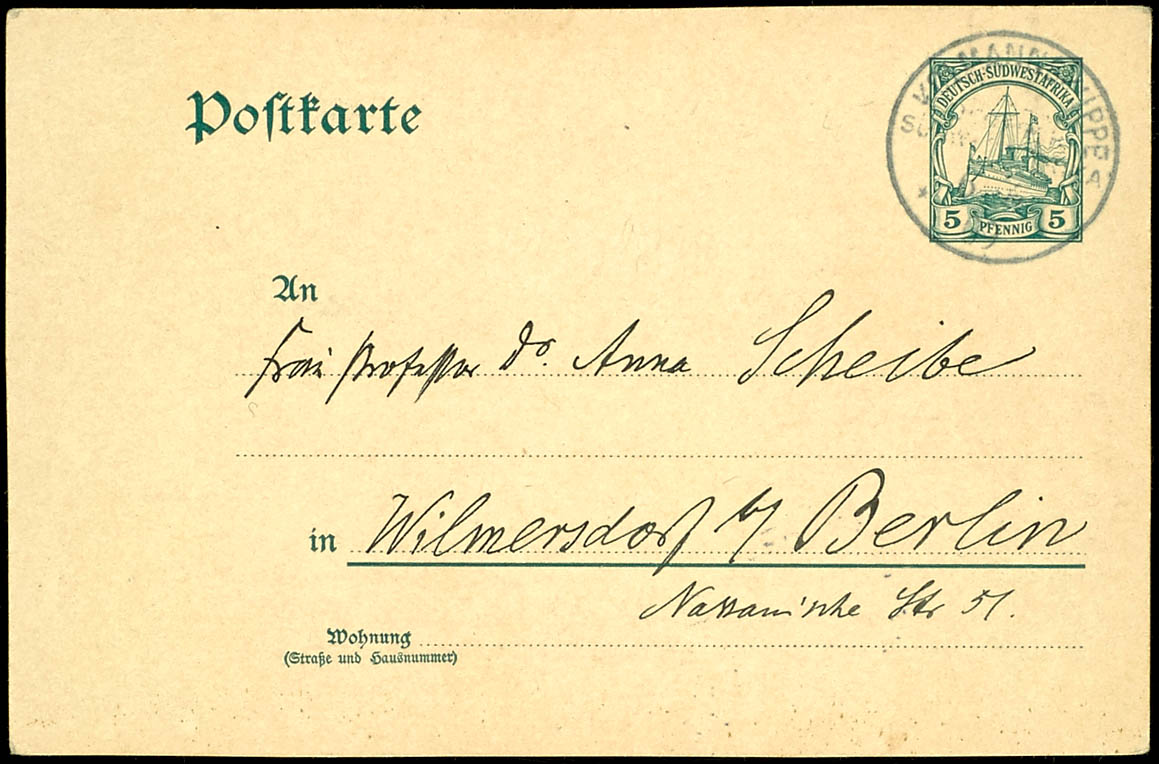 Postkarte
DEUTSCH-SÜDWESTAFRIKA
5 PFENNIG 5
An
Frau Professor Dr. Anna Scheibe
in Wilmersdorf b/ Berlin
Nassauische Str 51.
Wohnung
(Straße und Hausnummer)